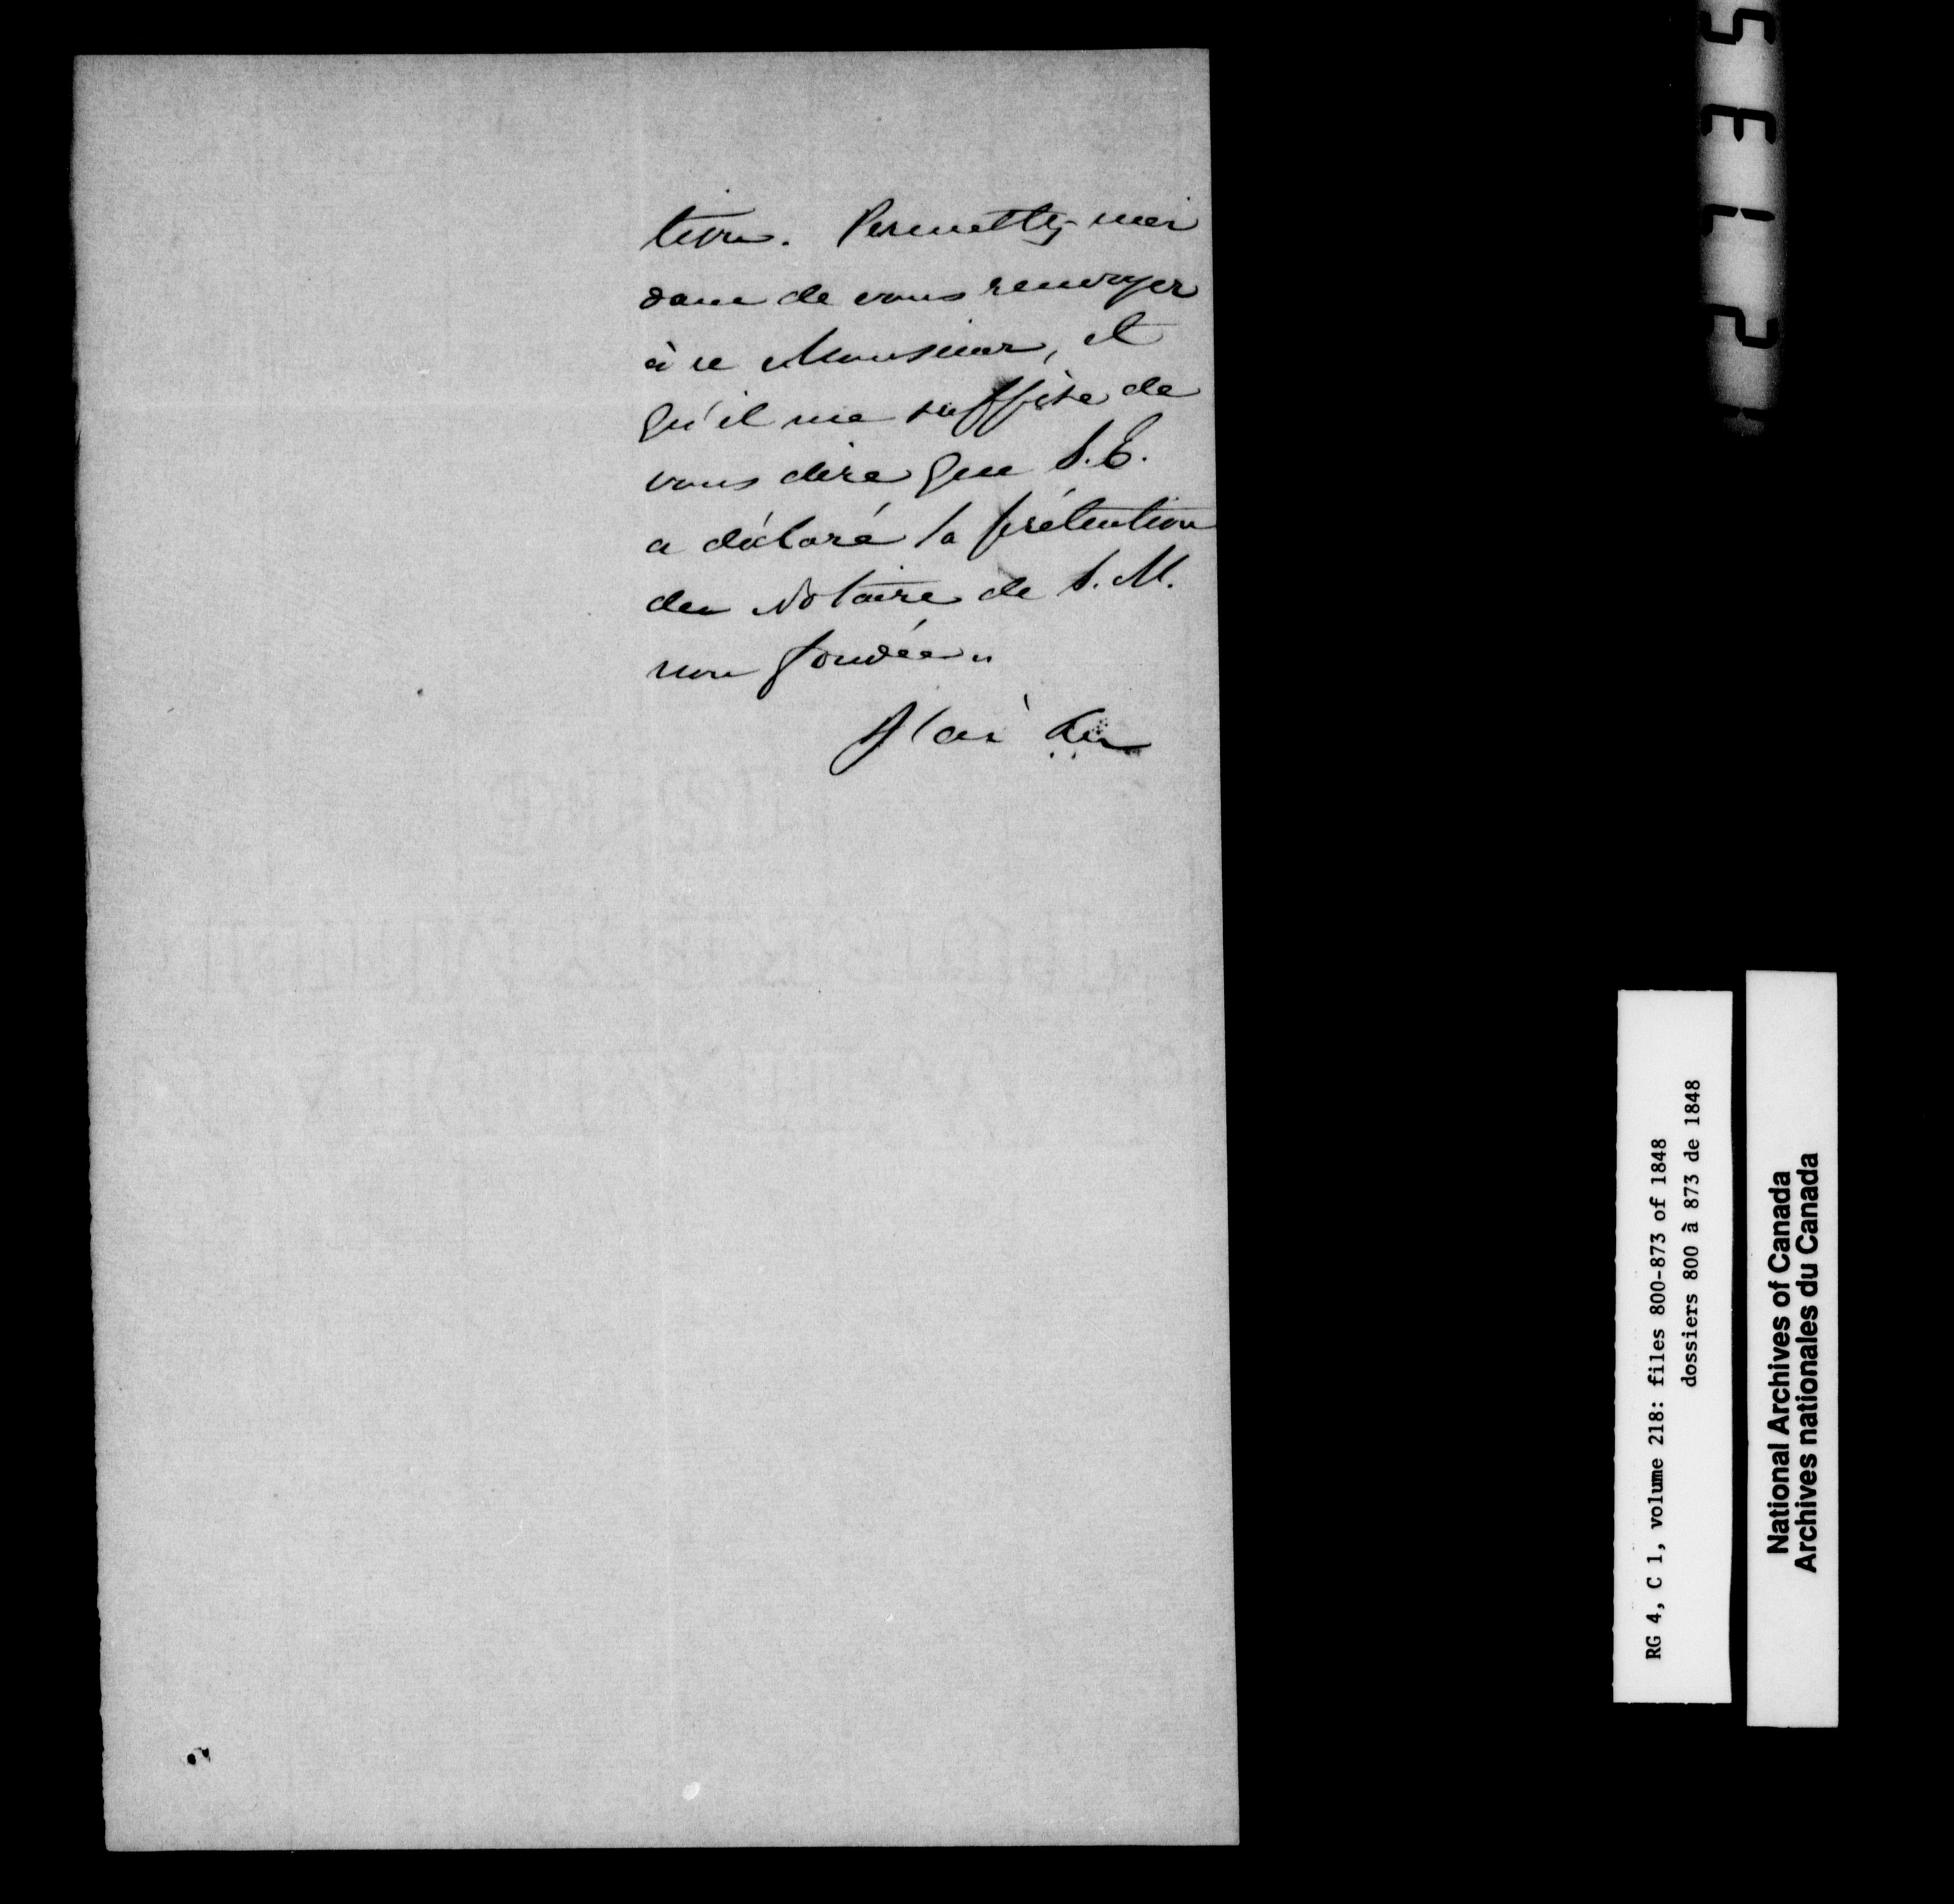 tion. Permettez-moi
donc de vous renvoyer
à ce Monsieur, et
qu'il me suffise de
vous dire que S.E.
a déclaré la prétention
du Notaire de S. M.
non fondée.
J'ai &c
5312
RG 4, C 1, volume 218: files 800-873 of 1848
dossiers 800 à 873 de 1848
National Archives of Canada
Archives nationales du Canada